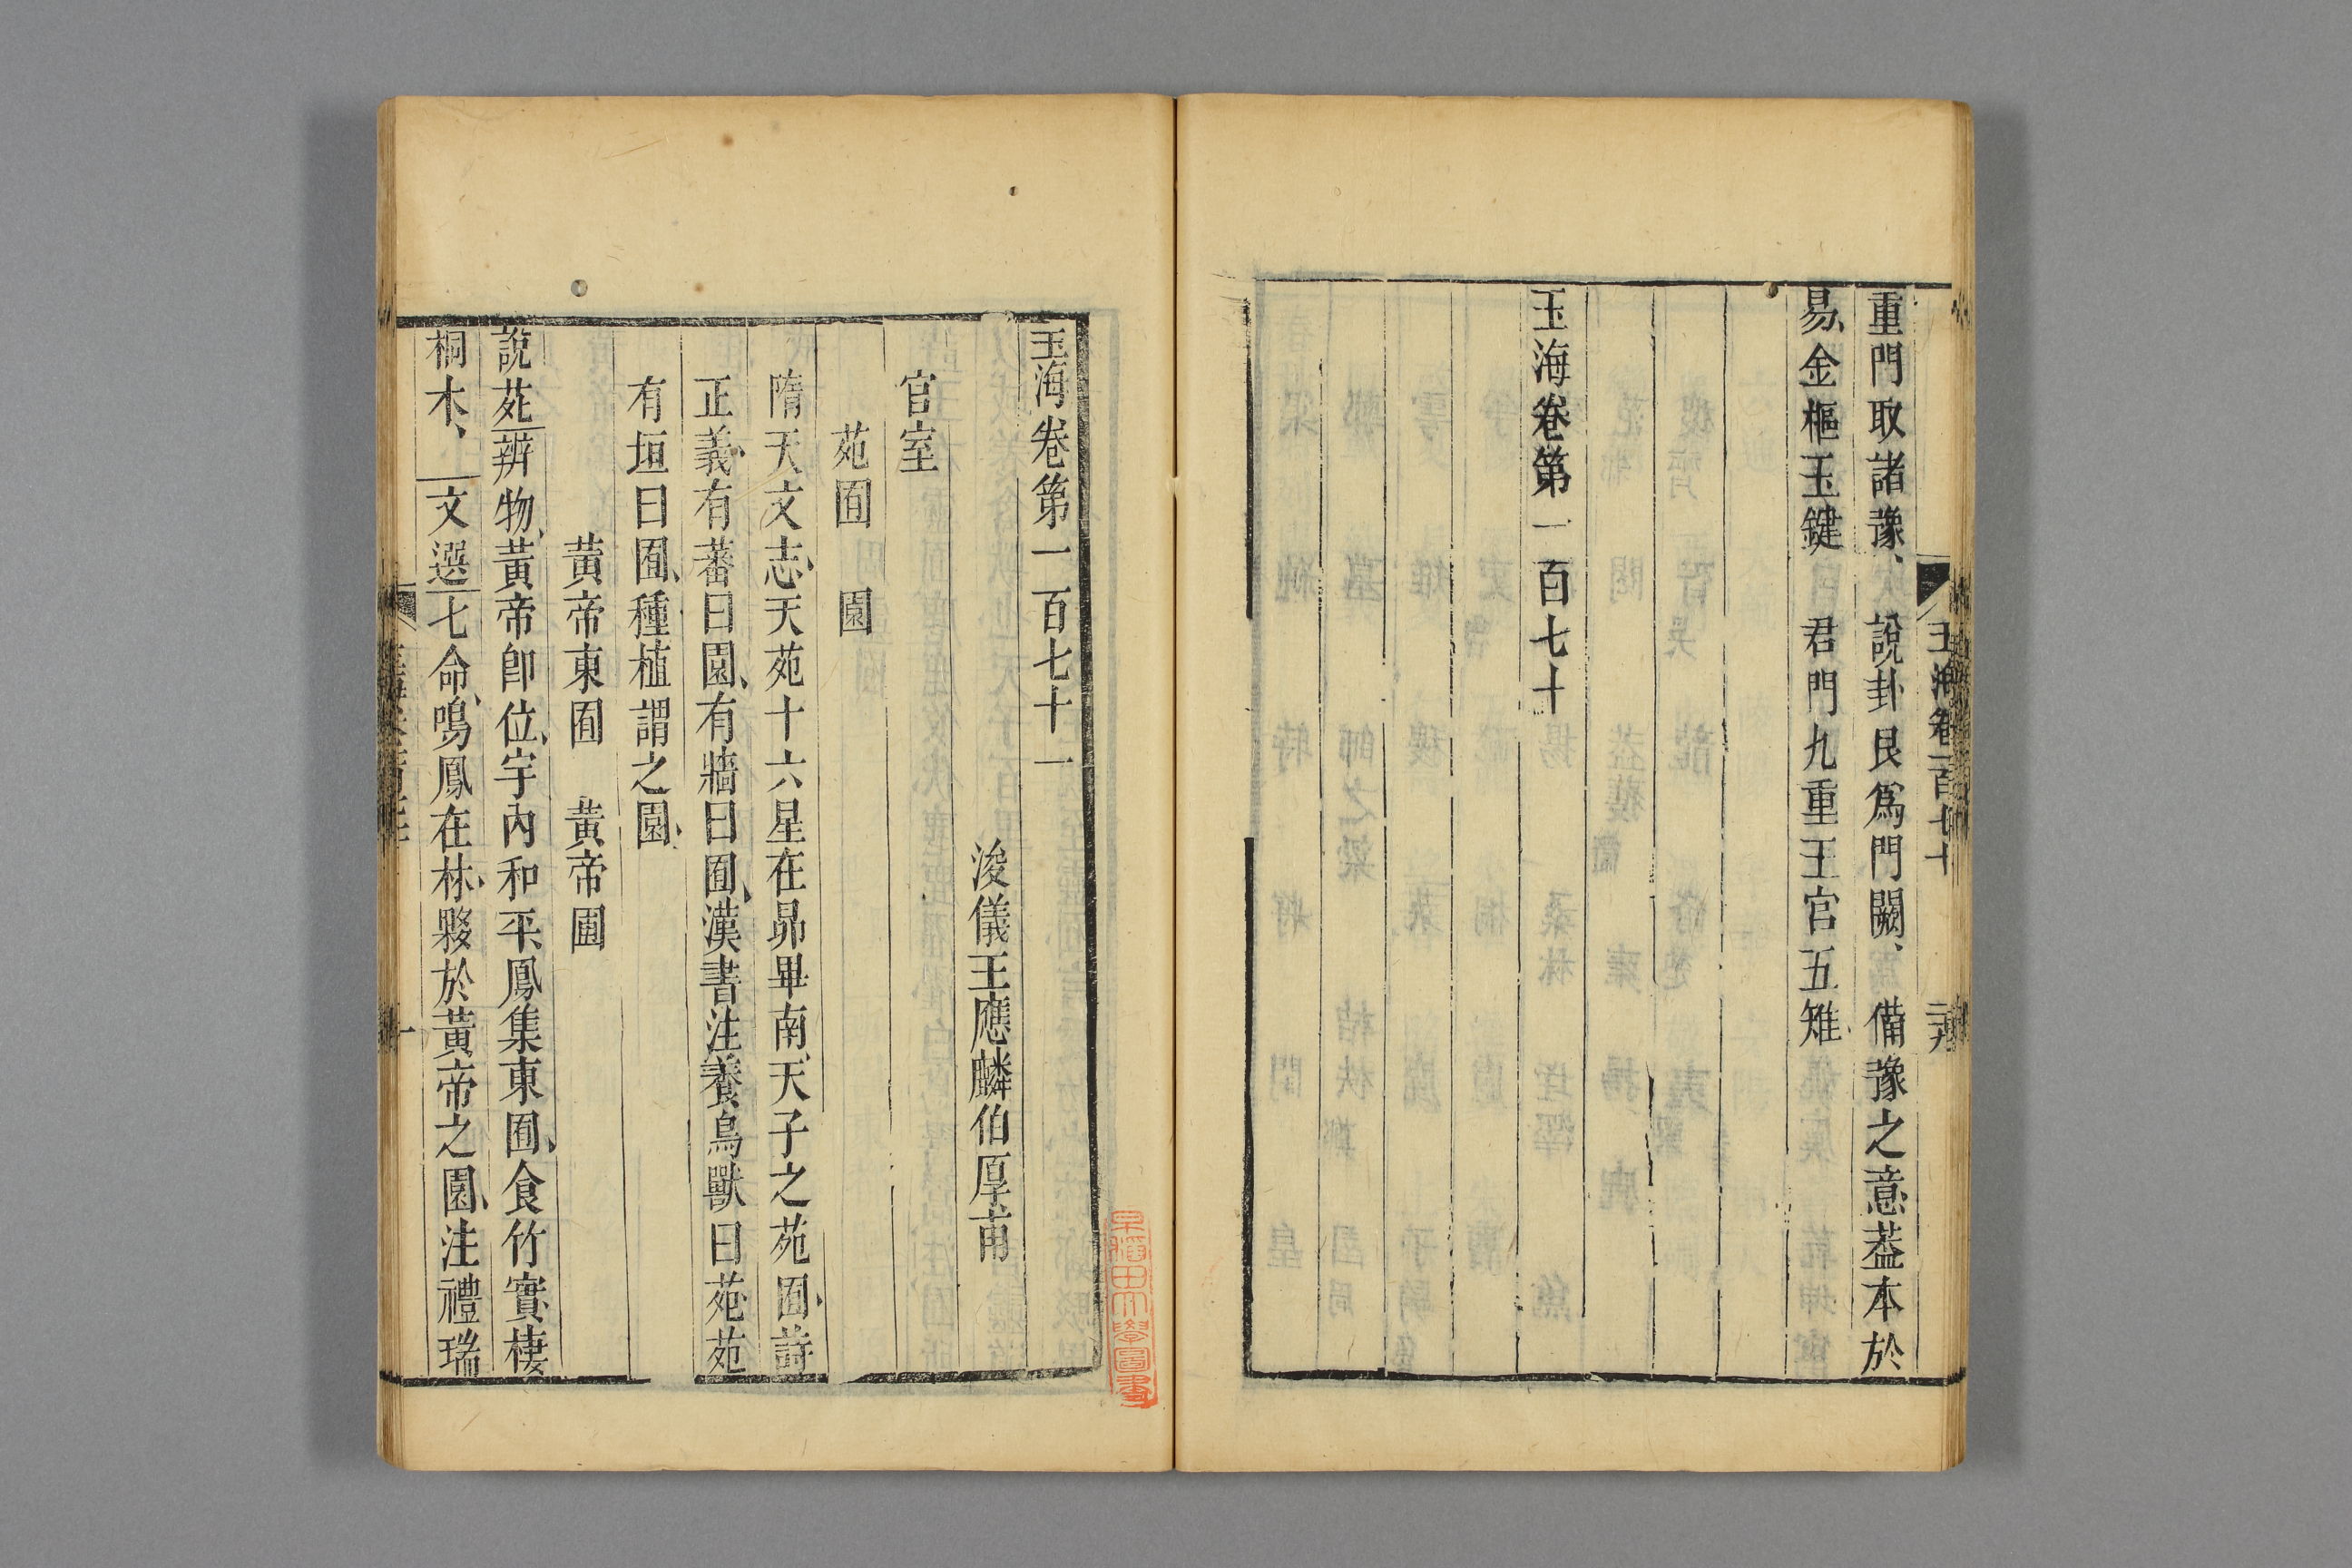 玉海卷一百七十
重門取諸豫、說卦艮爲門闕、備豫之意葢本於
易、金樞玉鍵 君門九重王宫五雉、
玉海卷第一百七十
玉海卷第一百七十一
浚儀王應麟伯厚甫
宫室
苑囿 園
隋天文志、天苑十六星在昴畢南、天子之苑囿、詩
正義、有蕃曰園、有牆曰囿、漢書注養鳥獸曰苑、苑
有垣曰囿、種植謂之園、
黃帝東囿 黃帝圃
說苑辨物、黃帝卽位、宇内和平、鳳集東囿、食竹實棲
桐木、文選七命、鳴鳳在林、夥於黃帝之園、注禮瑞
早稻田大學圖書